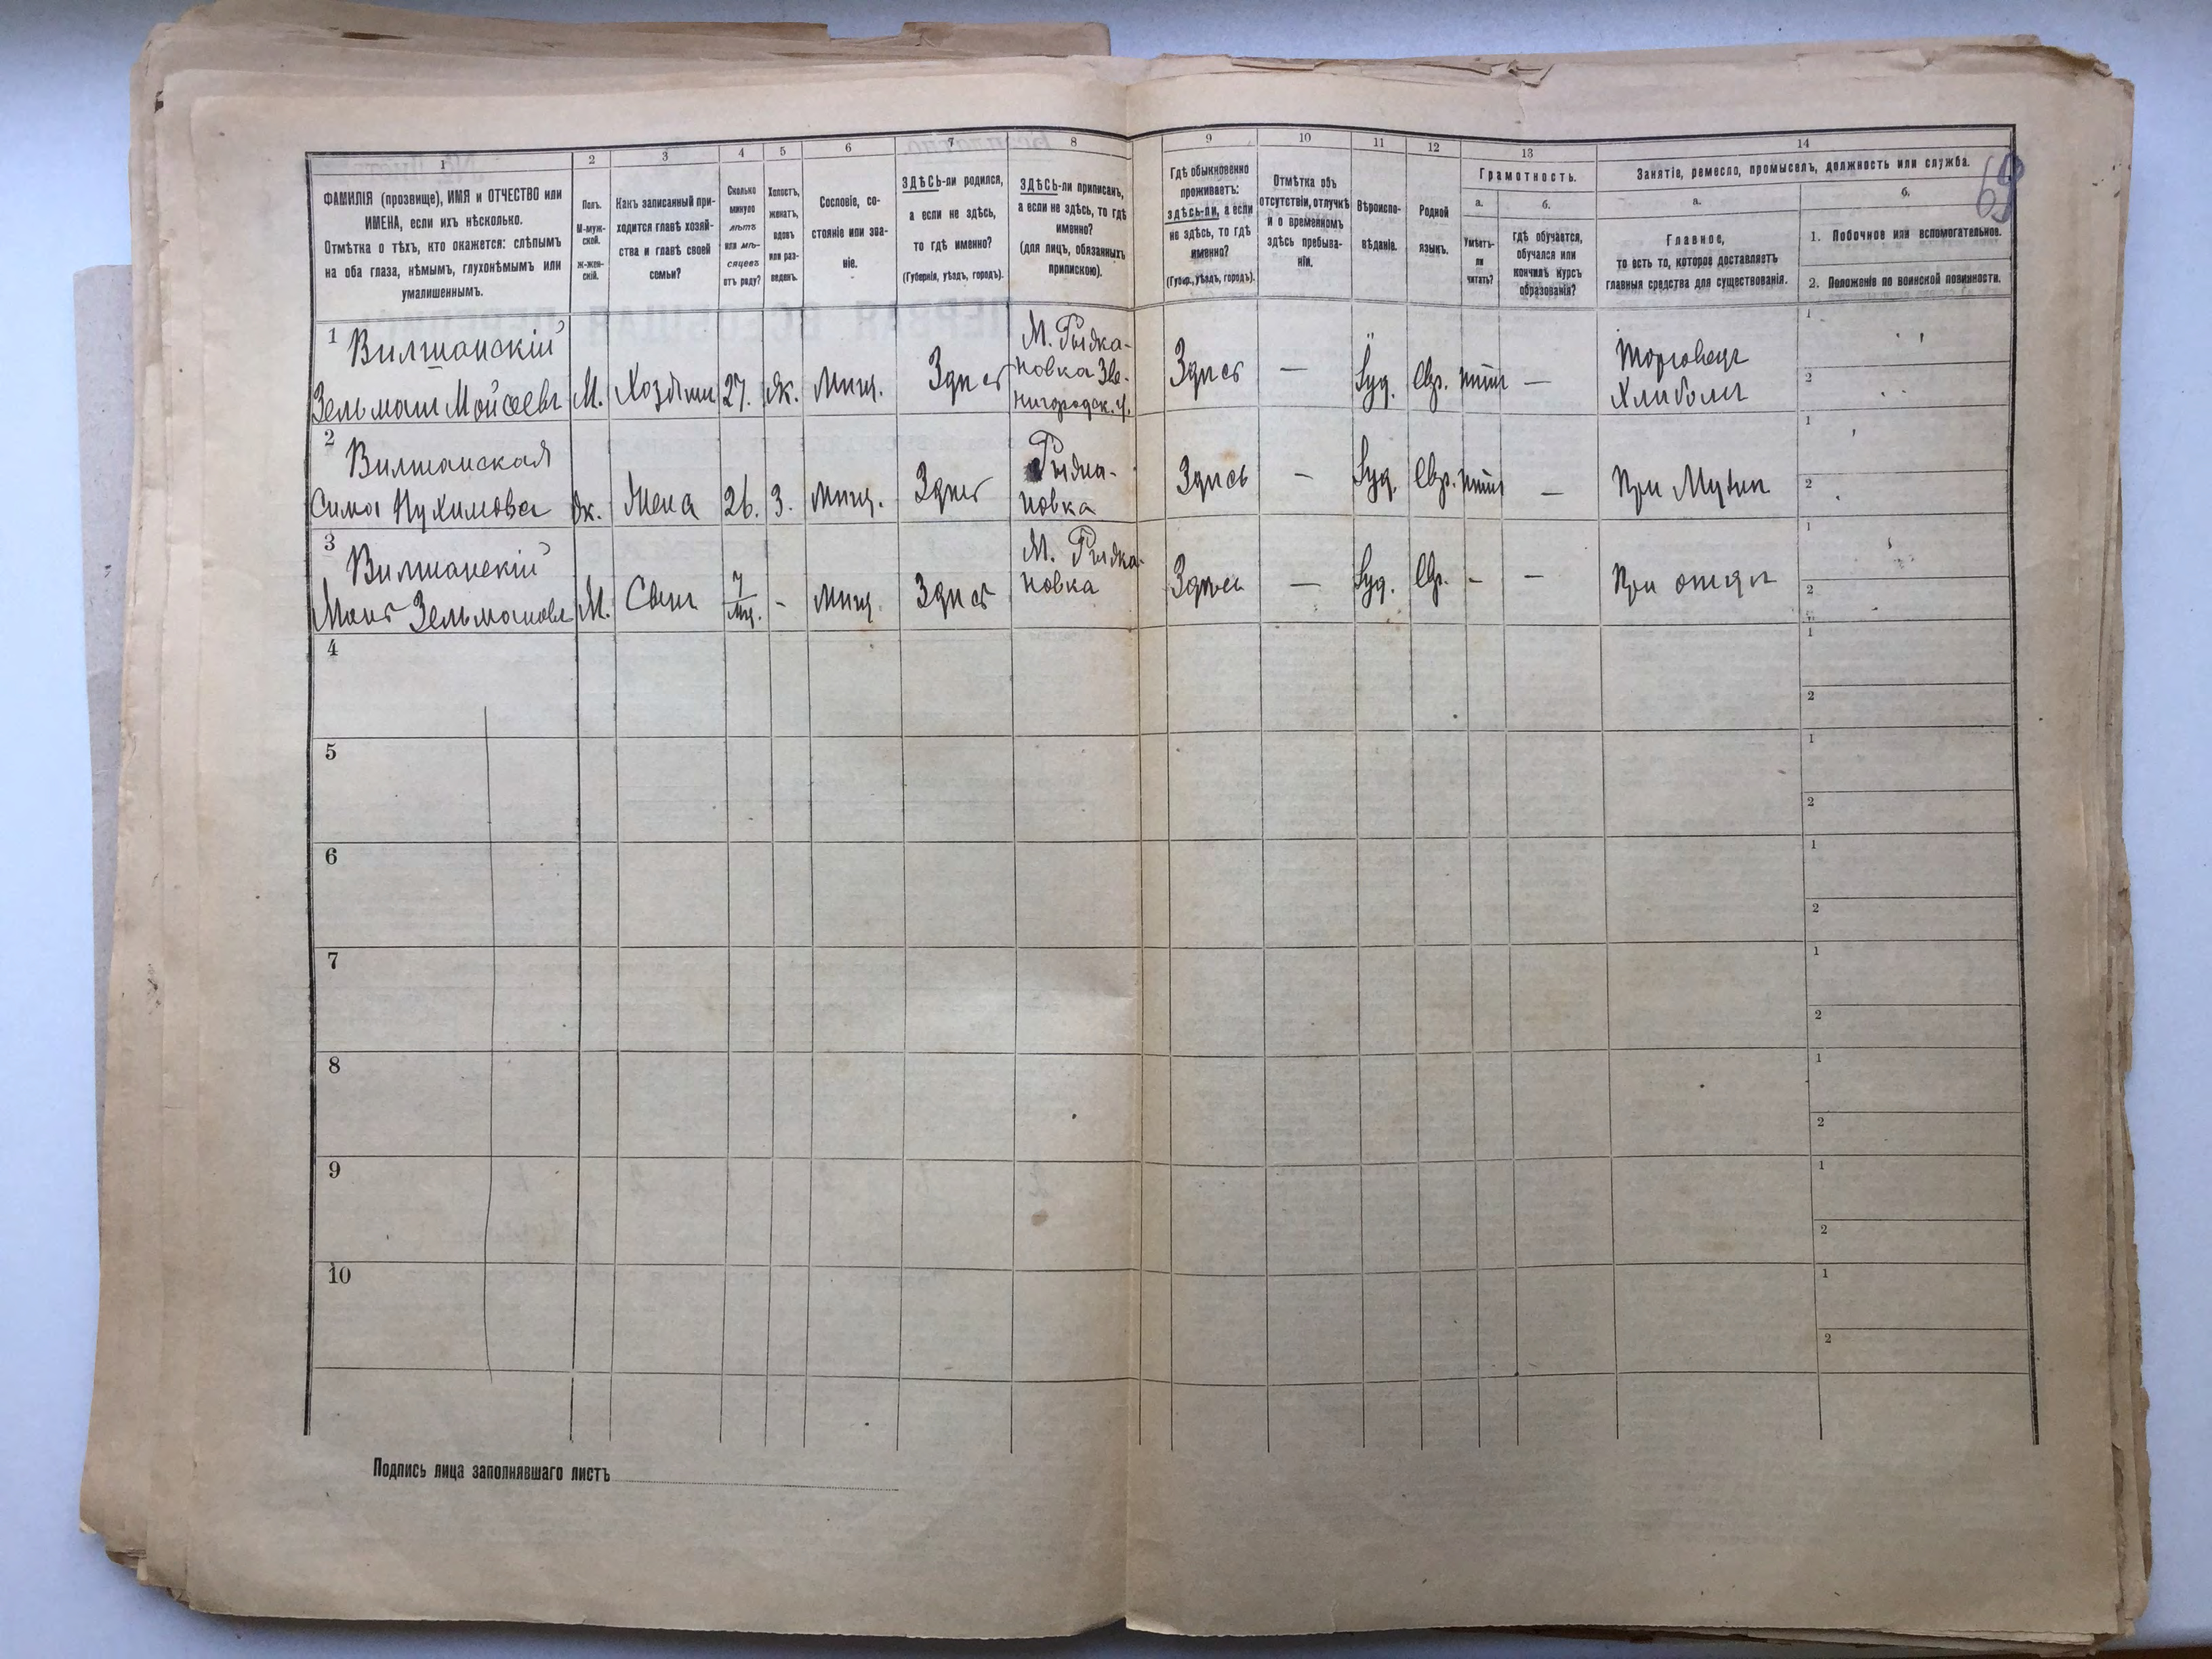 1
2
3
4
5
6
7
8
9
10
11
12
13
14
ФАМИЛІЯ (прозвище), ИМЯ и ОТЧЕСТВО или
ИМЕНА, если ихъ нѣсколько.
Отмѣтка о тѣхъ, кто окажется: слѣпымъ
на оба глаза, нѣмымъ, глухонѣмымъ или
умалишеннымъ.
Полъ.
М-муж-
ской.
Ж-жен-
скій.
Какъ записанный при-
ходится главѣ хозяй-
ства и главѣ своей
семьи?
Сколько
минуло
лѣтъ
или мѣ-
сяцевъ
отъ роду?
Холостъ,
женатъ,
вдовъ
или раз-
веденъ.
Сословіе, со-
стояніе или зва-
ніе.
ЗДѢСЬ-ли родился,
а если не здѣсь,
то гдѣ именно?
(Губернія, уѣздъ, городъ).
ЗДѢСЬ-ли приписанъ,
а если не здѣсь, то гдѣ
именно?
(для лицъ, обязанныхъ
припискою).
Гдѣ обыкновенно
проживаетъ:
здѣсь-ли, а если
не здѣсь, то гдѣ
именно?
(Губер., уѣздъ, городъ).
Отмѣтка объ
отсутствіи, отлучкѣ
и о временномъ
здѣсь пребыва-
ніи.
Вѣроиспо-
вѣданіе.
Родной
языкъ.
Грамотность.
а.
Умѣетъ-
ли
читать?
б.
Гдѣ обучается,
обучался или
кончилъ курсъ
образованія?
Занятіе, ремесло, промыселъ, должность или служба.
а.
Главное,
то есть то, которое доставляетъ
главныя средства для существованія.
б.
1. Побочное или вспомогательное.
2. Положеніе по воинской повинности.
69
1 Вилшанскій
Зельман Мойсеевъ М. Хозяин 27. ж. Мищ. Здись
М. Рыжа-
новка Зве-
нигородск. у.
Здись — Іуд. Евр. —
Торговец
Хлибом
1
2
2 Вилшанская
Сима Нухимова ж. Жена 26. З. мищ. Здись
Рыжа-
новка
Здись — Іуд. Евр. —
При Мужи
1
2
3 Вилшанскій
Зельманов М. Сын 7 мищ. Здись
М. Рыжа-
новка
Здись — Іуд. Евр. - —
При отци
1
2
4
1
2
5
1
2
6
1
2
7
1
2
8
1
2
9
1
2
10
1
2
Подпись лица заполнявшаго листъ